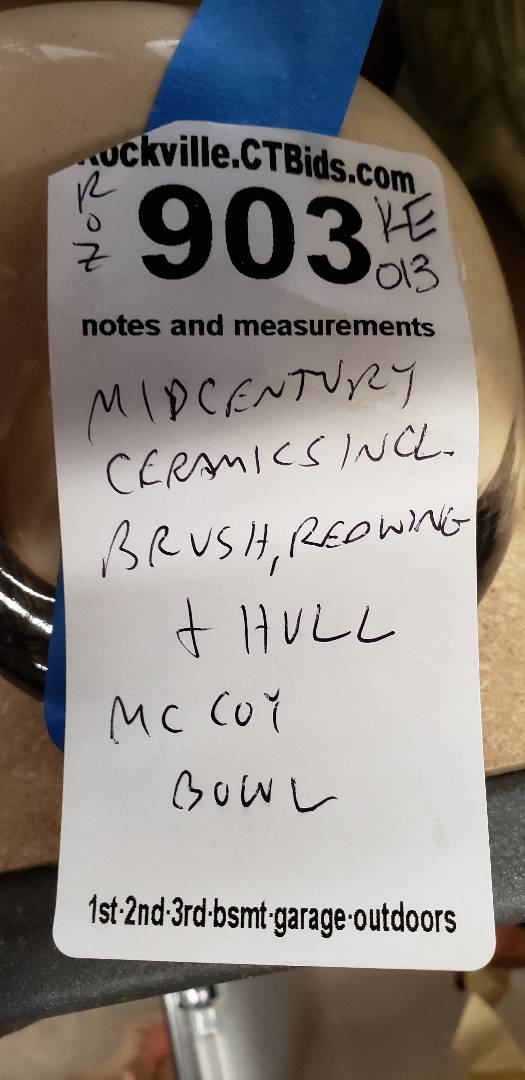 Rockville.CTBids.com
ROZ 903 KE 013
notes and measurements
MIDCENTURY
CERAMICS INCL.
BRUSH, REDWING
+ HULL
MC COY
BOWL
1st·2nd·3rd·bsmt·garage·outdoors